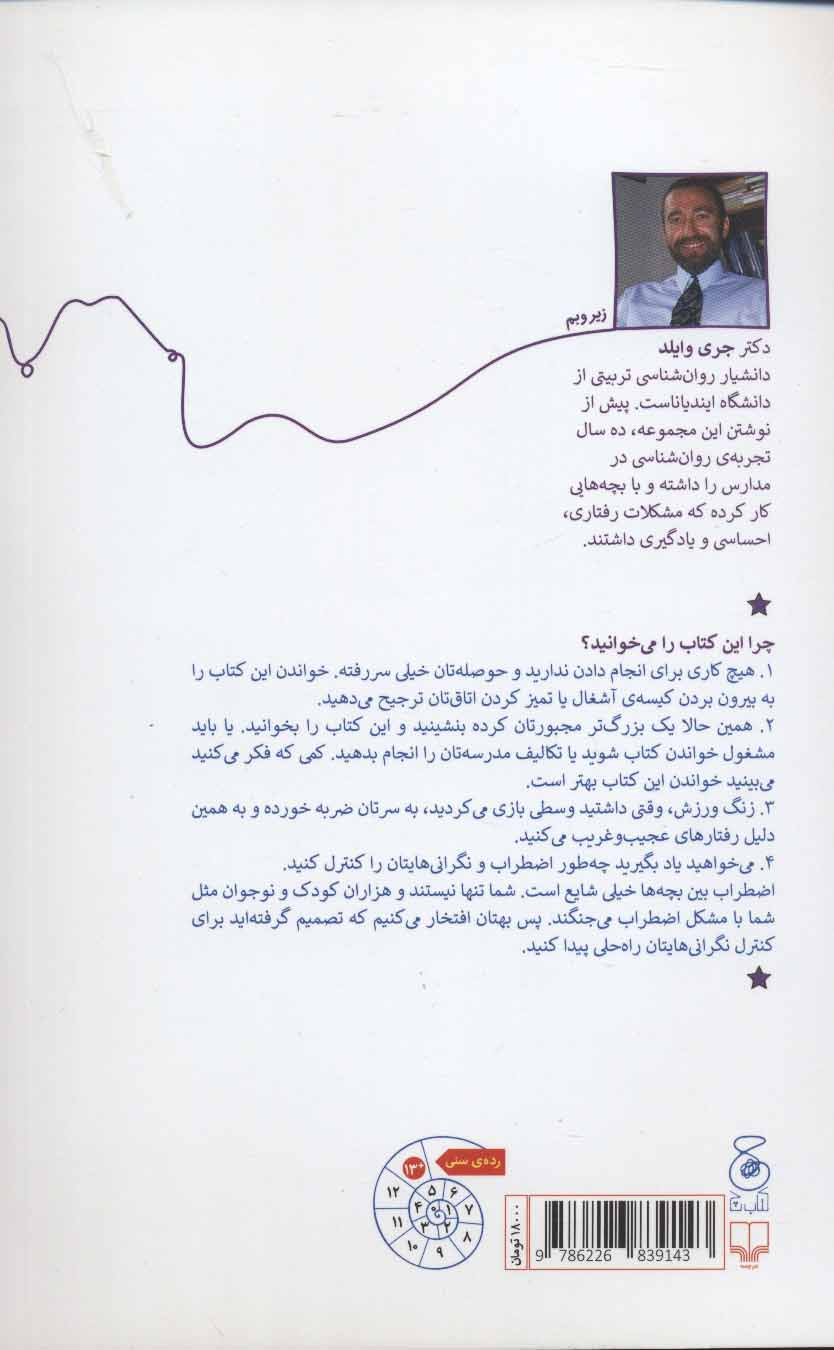 زیر و بم
دکتر جری وایلد
دانشیار روان‌شناسی تربیتی از
دانشگاه ایندیاناست. پیش از
نوشتن این مجموعه، ده سال
تجربه‌ی روان‌شناسی در
مدارس را داشته و با بچه‌هایی
کار کرده که مشکلات رفتاری،
احساسی و یادگیری داشتند.
چرا این کتاب را می‌خوانید؟
۱. هیچ کاری برای انجام دادن ندارید و حوصله‌تان خیلی سررفته. خواندن این کتاب را
به بیرون بردن کیسه‌ی آشغال یا تمیز کردن اتاق‌تان ترجیح می‌دهید.
۲. همین حالا یک بزرگ‌تر مجبورتان کرده بنشینید و این کتاب را بخوانید. یا باید
مشغول خواندن کتاب شوید یا تکالیف مدرسه‌تان را انجام بدهید. کمی که فکر می‌کنید
می‌بینید خواندن این کتاب بهتر است.
۳. زنگ ورزش، وقتی داشتید وسطی بازی می‌کردید، به سرتان ضربه خورده و به همین
دلیل رفتارهای عجیب‌وغریب می‌کنید.
۴. می‌خواهید یاد بگیرید چه‌طور اضطراب و نگرانی‌هایتان را کنترل کنید.
اضطراب بین بچه‌ها خیلی شایع است. شما تنها نیستند و هزاران کودک و نوجوان مثل
شما با مشکل اضطراب می‌جنگند. پس بهتان افتخار می‌کنیم که تصمیم گرفته‌اید برای
کنترل نگرانی‌هایتان راه‌حلی پیدا کنید.
رده‌ی سنی
+۱۳
۱۲
۱۱
۱۰
۹
۸
۷
۶
۵
۴
۳
۲
۱
۰
۱۸۰۰۰ تومان
9 786226 839143
کتاب چ
چرچمه